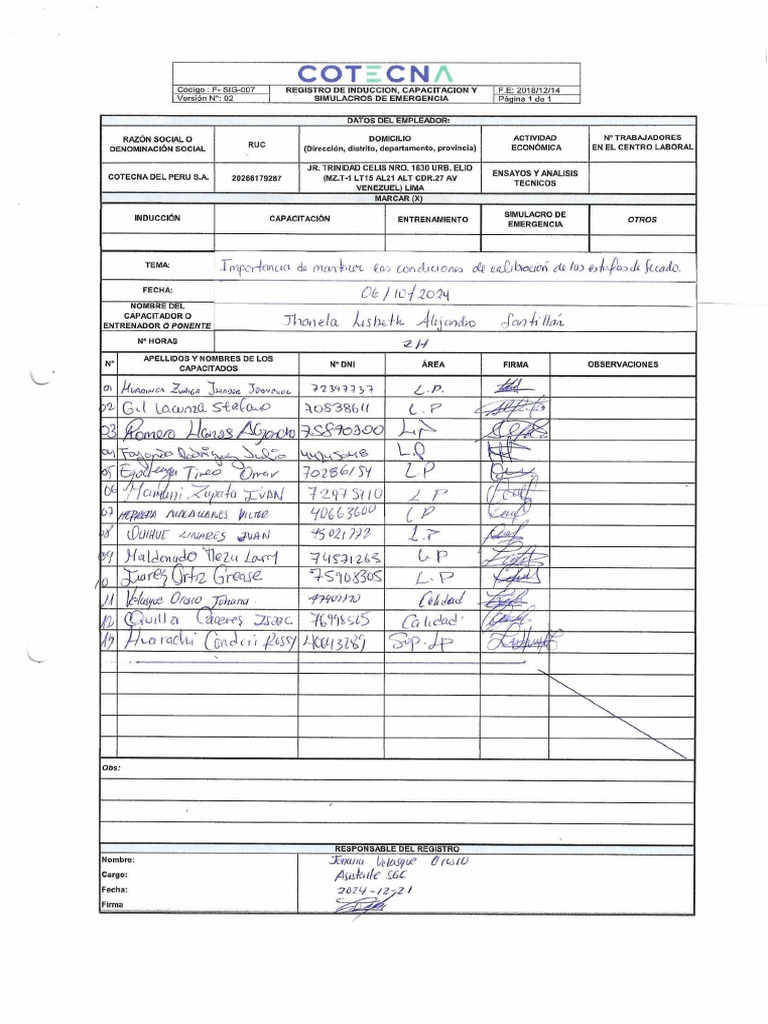 COTECNA
Código : F- SIG-007
Versión N°: 02
REGISTRO DE INDUCCION, CAPACITACION Y SIMULACROS DE EMERGENCIA
F.E: 2018/12/14
Página 1 de 1
DATOS DEL EMPLEADOR:
RAZÓN SOCIAL O DENOMINACIÓN SOCIAL
RUC
DOMICILIO (Dirección, distrito, departamento, provincia)
ACTIVIDAD ECONÓMICA
N° TRABAJADORES EN EL CENTRO LABORAL
COTECNA DEL PERU S.A.
20266179287
JR. TRINIDAD CELIS NRO. 1630 URB. ELIO (MZ.T-1 LT15 AL21 ALT CDR.27 AV VENEZUEL) LIMA
ENSAYOS Y ANALISIS TECNICOS
MARCAR (X)
INDUCCIÓN CAPACITACIÓN ENTRENAMIENTO SIMULACRO DE EMERGENCIA OTROS
TEMA: Importancia de mantener las condiciones de calibración de las estufas de Secado.
FECHA: 06/10/2024
NOMBRE DEL CAPACITADOR O ENTRENADOR O PONENTE Jhanela Lisbeth Alejandro Santillán
N° HORAS 2H
N° APELLIDOS Y NOMBRES DE LOS CAPACITADOS N° DNI ÁREA FIRMA OBSERVACIONES
01 72397737 L.P.
02 Gil Lacunza Stefano 70838611 L.P
03 Romero Llanos Alejandro L.P
04 Rodriguez Julio L.P
05 Tineo Omar 70286154 L.P
06 Mamani Zapata IVAN 72975710 L P
07 HERRERA MAGALLANES VICTOR 40663600 L P
08 QUIHUE LINARES JUAN L.P
09 Maldonado Meza Larry 74571263 L.P
10 Juarez Ortiz Grease 75908305 L.P
11 Velasque Orosco Johana. Calidad
12 Quilla Caceres Isaac 76998565 Calidad.
13 Huarachi Condori Rossy 40043289 Sup. LP
Obs:
RESPONSABLE DEL REGISTRO
Nombre: Johana Velasque Orosco
Cargo: Asistente SGC
Fecha: 2024-12-21
Firma